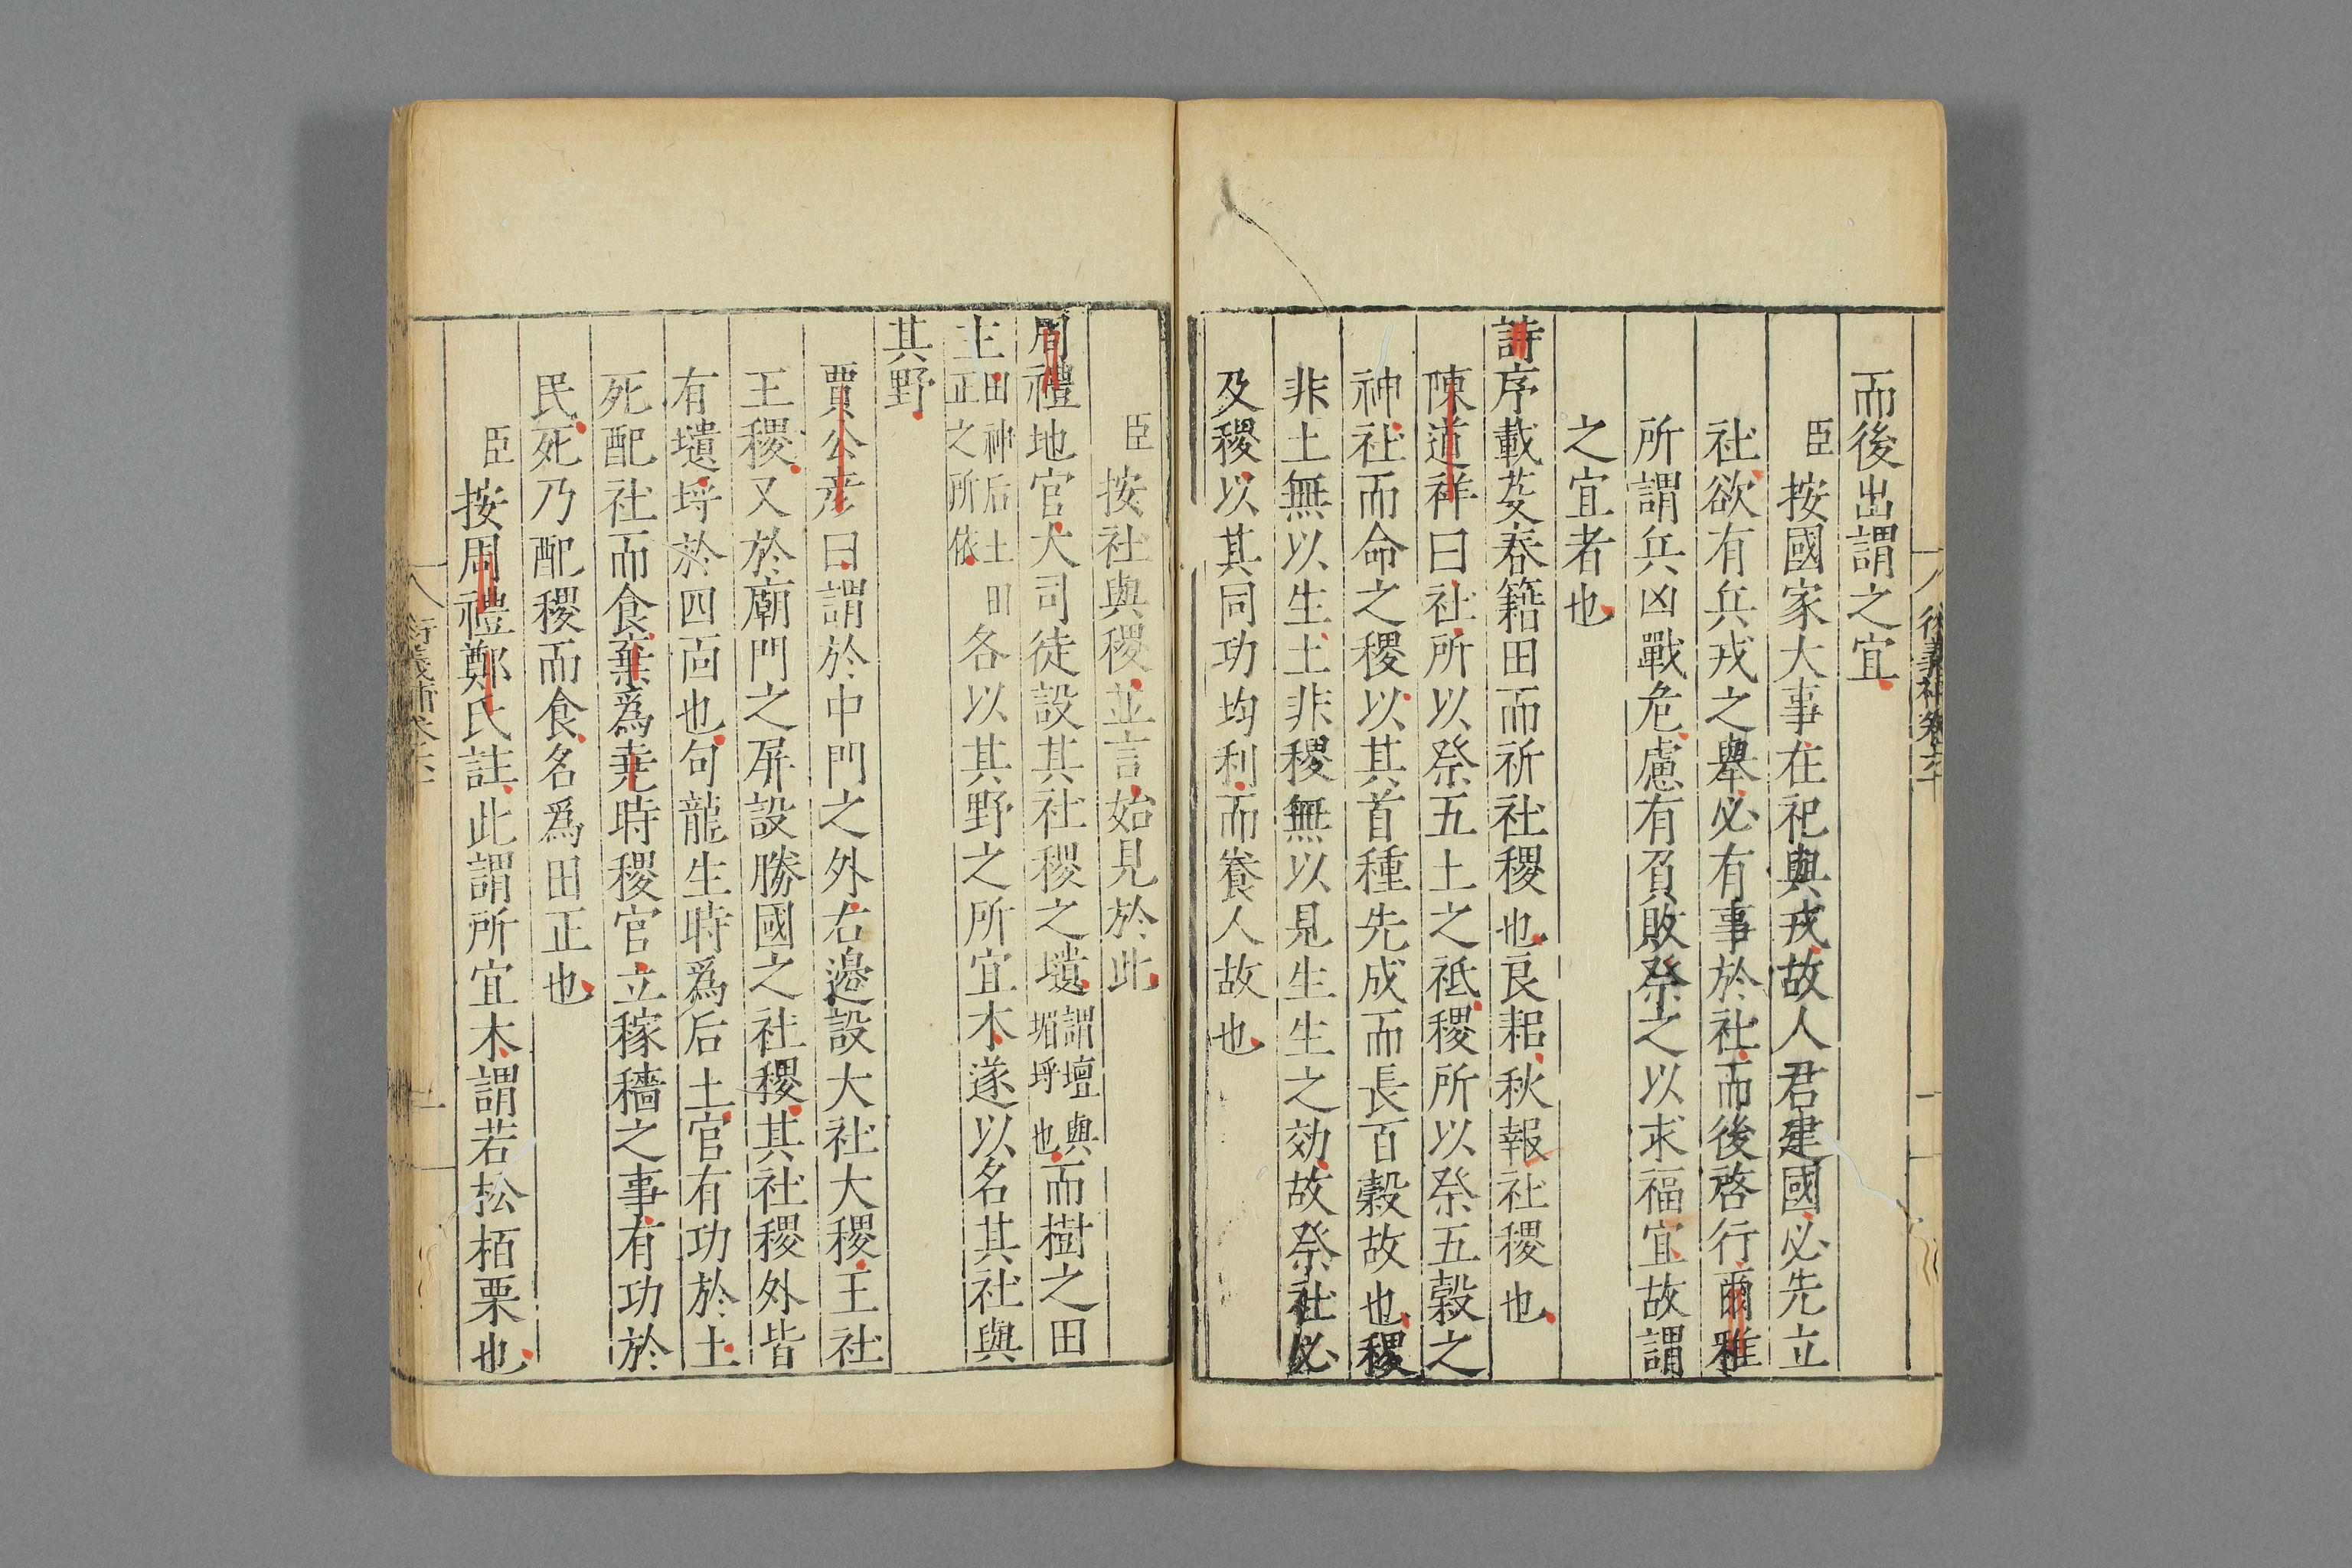 後義補卷六十
一
而後出謂之宜
臣按國家大事在祀與戎故人君建國必先立
社欲有兵戎之舉必有事於社而後啓行爾雅
所謂兵凶戰危慮有負敗祭之以求福宜故謂
之宜者也
詩序載芟春籍田而祈社稷也良耜秋報社稷也
陳道祥曰社所以祭五土之祗稷所以祭五穀之
神社而命之稷以其首種先成而長百穀故也稷
非土無以生土非稷無以見生生之効故祭社必
及稷以其同功均利而養人故也
臣按社與稷並言始見於此
周禮地官大司徒設其社稷之壝謂壇與堳埒也而樹之田
主田神后土田正之所依各以其野之所宜木遂以名其社與
其野
賈公彥曰謂於中門之外右邊設大社大稷王社
王稷又於廟門之屏設勝國之社稷其社稷外皆
有壝埒於四靣也句龍生時爲后土官有功於土
死配社而食棄爲堯時稷官立稼穡之事有功於
民死乃配稷而食名爲田正也
臣按周禮鄭氏註此謂所宜木謂若松栢栗也
衍義補卷六十